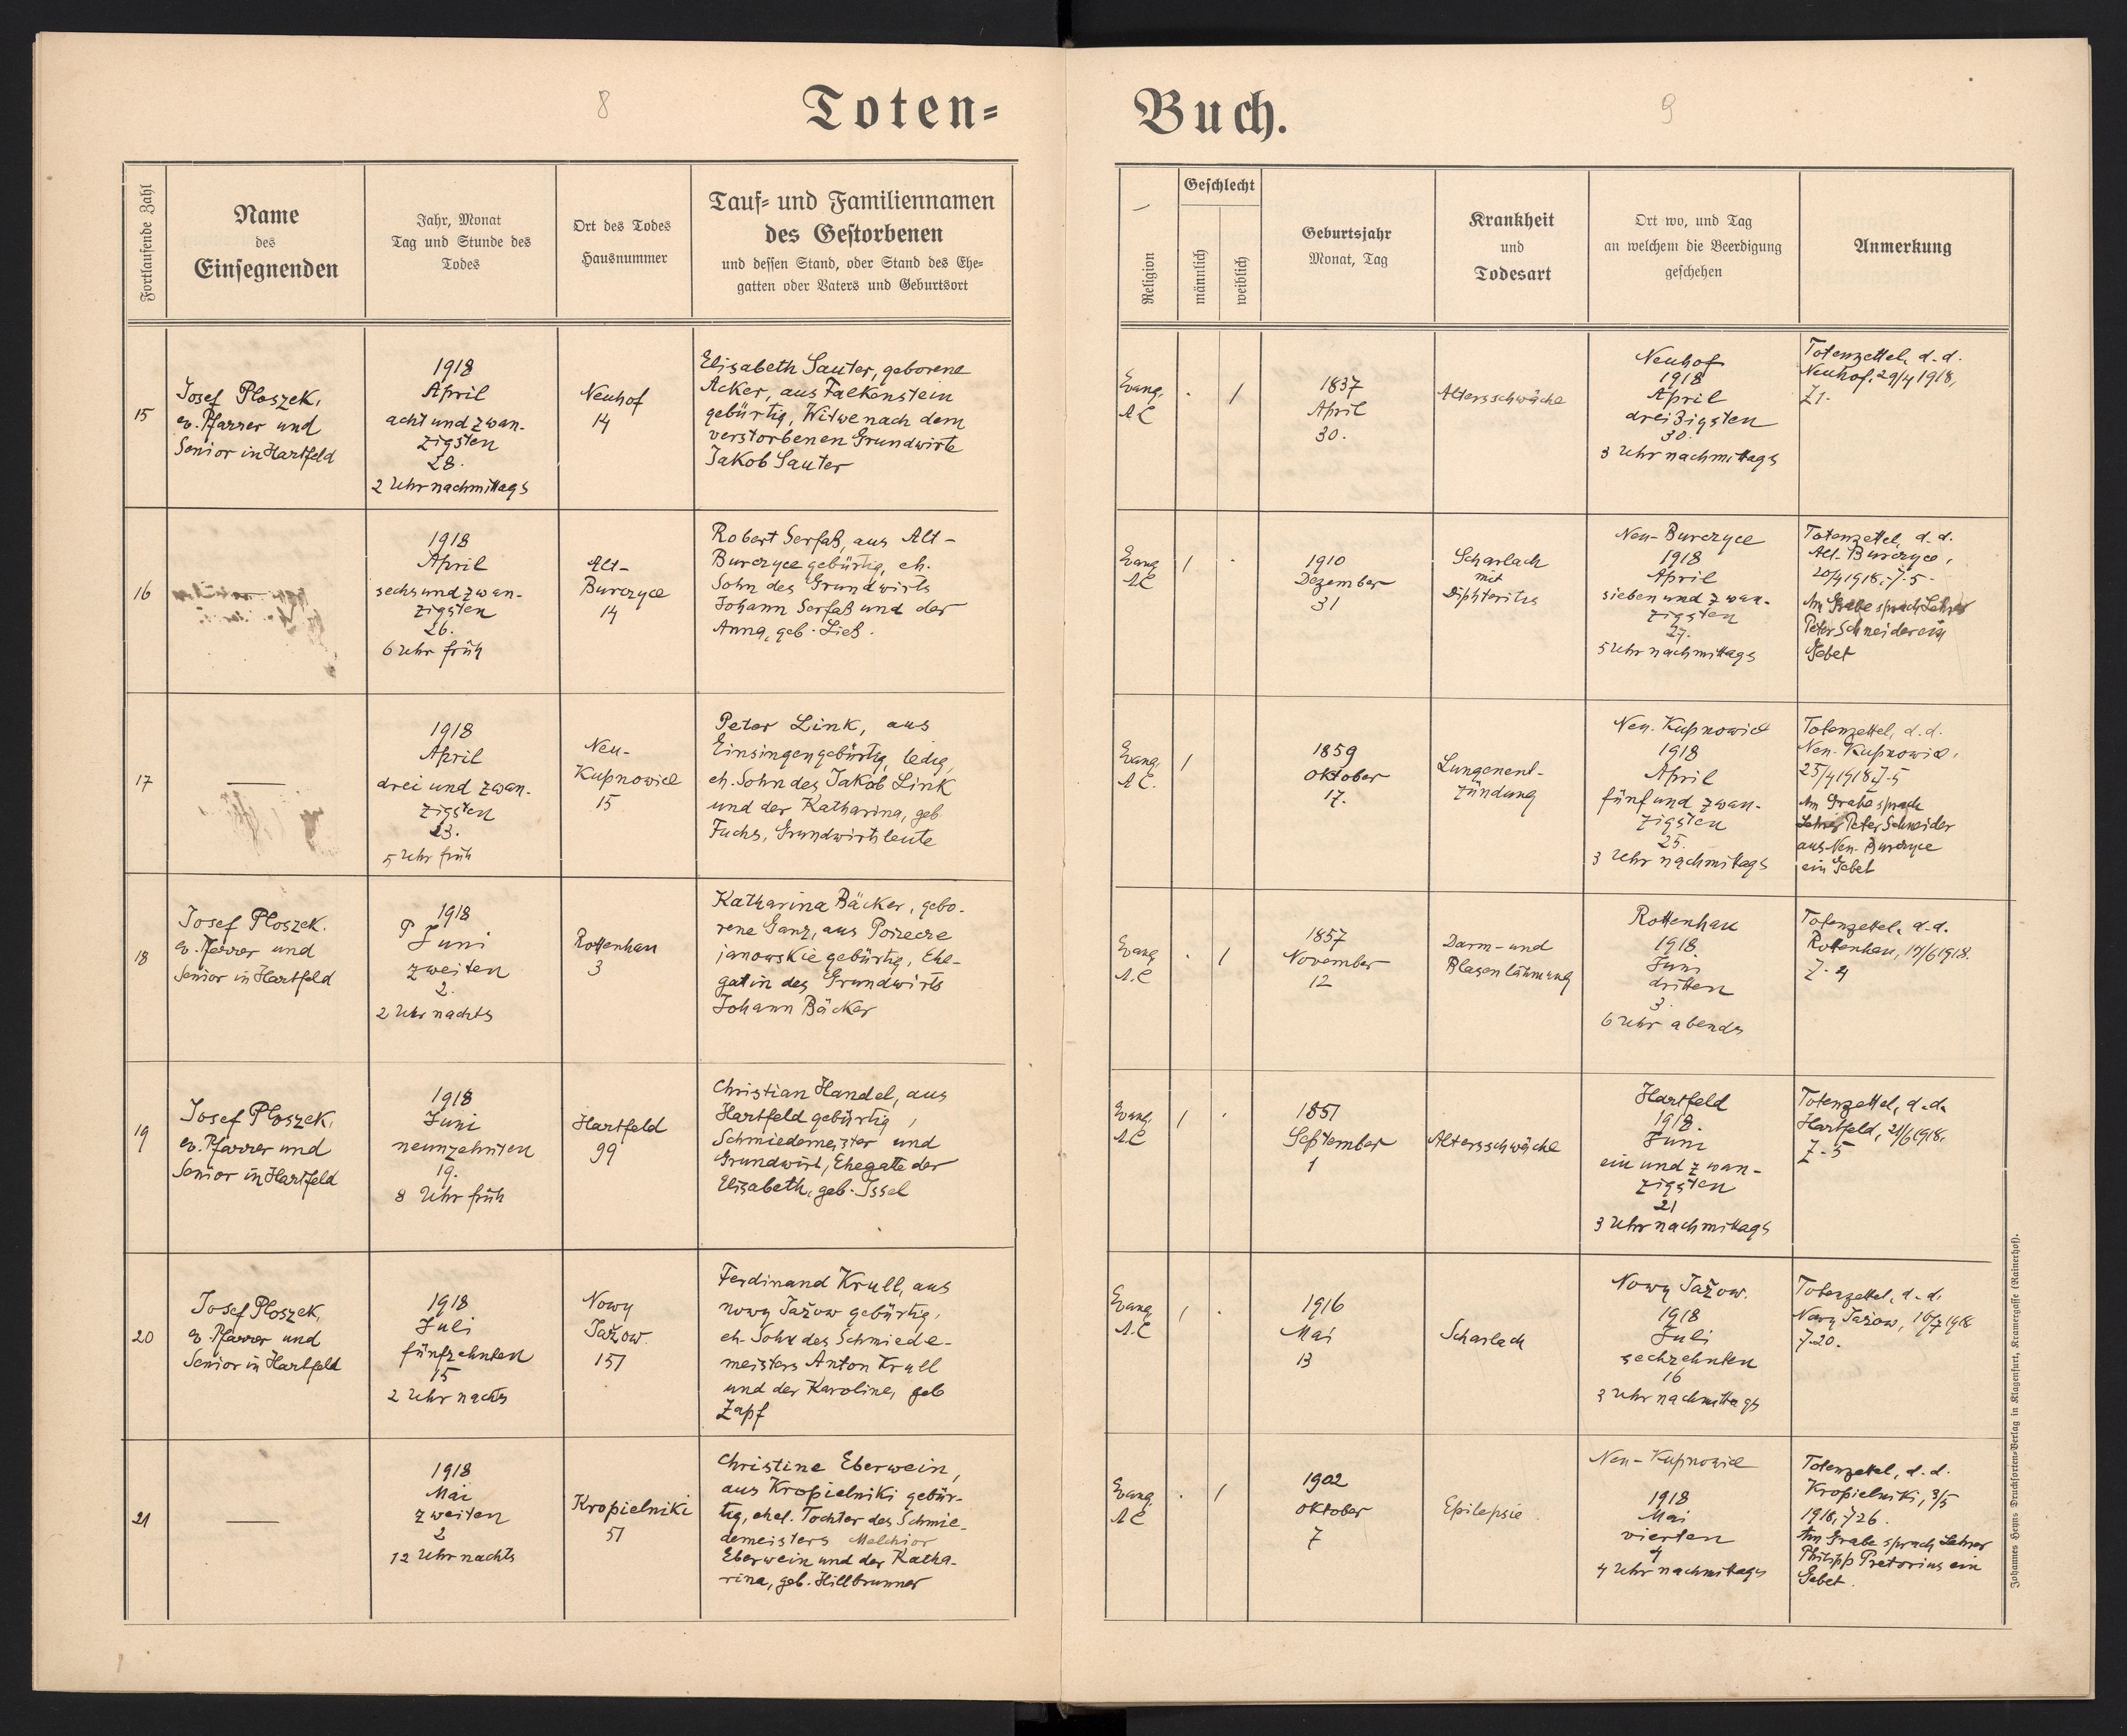 8
Toten=
Fortlaufende Zahl
Name
des
Einsegnenden
Jahr, Monat
Tag und Stunde des
Todes
Ort des Todes
Hausnummer
Tauf= und Familiennamen
des Gestorbenen
und dessen Stand, oder Stand des Ehe=
gatten oder Vaters und Geburtsort
15
Josef Ploszek,
ev. Pfarrer und
Senior in Hartfeld
1918
April
acht und zwan-
zigsten
28.
2 Uhr nachmittags
Neuhof
14
Elisabeth Sauter, geborene
Acker, aus Falkenstein
gebürtig, Witwe nach dem
verstorbenen Grundwirte
Jakob Sauter
16
1918
April
sechs und zwan-
zigsten
26.
6 Uhr früh
Alt-
Burczyce
14
Robert Serfaß, aus Alt-
Burczyce gebürtig, eh.
Sohn des Grundwirts
Johann Serfaß und der
Anna, geb. Ließ.
17
1918
April
drei und zwan-
zigsten
23.
5 Uhr früh
Neu-
Kupnowice
15
Peter Link, aus
Einsingen gebürtig, ledig,
eh. Sohn des Jakob Link
und der Katharina, geb.
Fuchs, Grundwirtsleute
18
Josef Ploszek.
ev. Pfarrer und
Senior in Hartfeld
1918
Juni
zweiten
2.
2 Uhr nachts
Rottenhan
3
Katharina Bäcker, gebo-
rene Ganz, aus Porzecze
janowskie gebürtig, Ehe-
gatin des Grundwirts
Johann Bäcker
19
Josef Ploszek,
ev. Pfarrer und
Senior in Hartfeld
1918
Juni
neunzehnten
19.
8 Uhr früh
Hartfeld
99
Christian Handel, aus
Hartfeld gebürtig,
Schmiedemeister und
Grundwirt, Ehegate der
Elisabeth, geb. Issel
20
Josef Ploszek,
ev. Pfarrer und
Senior in Hartfeld
1918
Juli
fünfzehnten
15
2 Uhr nachts
Nowy
Jażow
151
Ferdinand Krull, aus
nowy Jażow gebürtig,
eh. Sohn des Schmiede-
meisters Anton Krull
und der Karoline, geb
Zapf
21
1918
Mai
zweiten
2
12 Uhr nachts
Kropielniki
51
Christine Eberwein,
aus Kropielniki gebür-
tig, ehel. Tochter des Schmie-
demeisters Melchior
Eberwein und der Katha-
rina, geb. Hillbrunner
Buch.
9
Religion
Geschlecht
männlich
weiblich
Geburtsjahr
Monat, Tag
Krankheit
und
Todesart
Ort wo, und Tag
an welchem die Beerdigung
geschehen
Anmerkung
Evang.
A.C
1
1837
April
30.
Altersschwäche
Neuhof
1918
April
dreißigsten
30.
3 Uhr nachmittags
Totenzettel, d. d.
Neuhof, 29/4 1918,
Z1.
Evang
A.C
1
1910
Dezember
31
Scharlach
mit
Diphteritis
Neu-Burczyce
1918
April
sieben und zwan-
zigsten
27.
5 Uhr nachmittags
Totenzettel, d. d.
Alt-Burczyce,
1918, Z-5.
Am Grabe sprach Lehrer
Peter Schneider ein
Gebet
Evang.
A.C.
1
1859
Oktober
17.
Lungenent-
zündung
Neu-Kupnowice
1918
April
fünf und zwan-
zigsten
25.
3 Uhr nachmitags
Totenzettel, d. d.
Neu-Kupnowice,
25/4 1918, Z-5
Am Grabe sprach
Lehrer Peter Schneider
aus Neu-Burczyce
ein Gebet
Evang
A.C
1
1857
November
12
Darm- und
Blasenlähmung
Rottenhan
1918
Juni
dritten
3.
6 Uhr abends
Totenzettel, d. d.
Rottenhan, 1918.
Z. 4
Evang.
A.C
1
1851
September
1
Altersschwäche
Hartfeld
1918.
Juni
ein und zwan-
zigsten
21
3 Uhr nachmittags
Totenzettel, d. d.
Hartfeld, 21/6 1918,
Z-5
Evang.
A.C
1
1916
Mai
13
Scharlach
Nowy Jażow.
1918
Juli
sechzehnten
16
3 Uhr nachmittags
Totenzettel, d. d.
Nowy Jażow, 16/7 1918
Z-20.
Evang.
A.C
1
1902
Oktober
7
Epilepsie
Neu-Kupnowice
1918
Mai
vierten
4
4 Uhr nachmitags
Totenzettel, d. d.
Kropielniki, 3/5
1918, Z26.
Am Grabe sprach Lehrer
Philipp Pretorius ein
Gebet.
Johannes Heyns Drucksorten=Verlag in Klagenfurt, Kramergasse (Rainerhof).